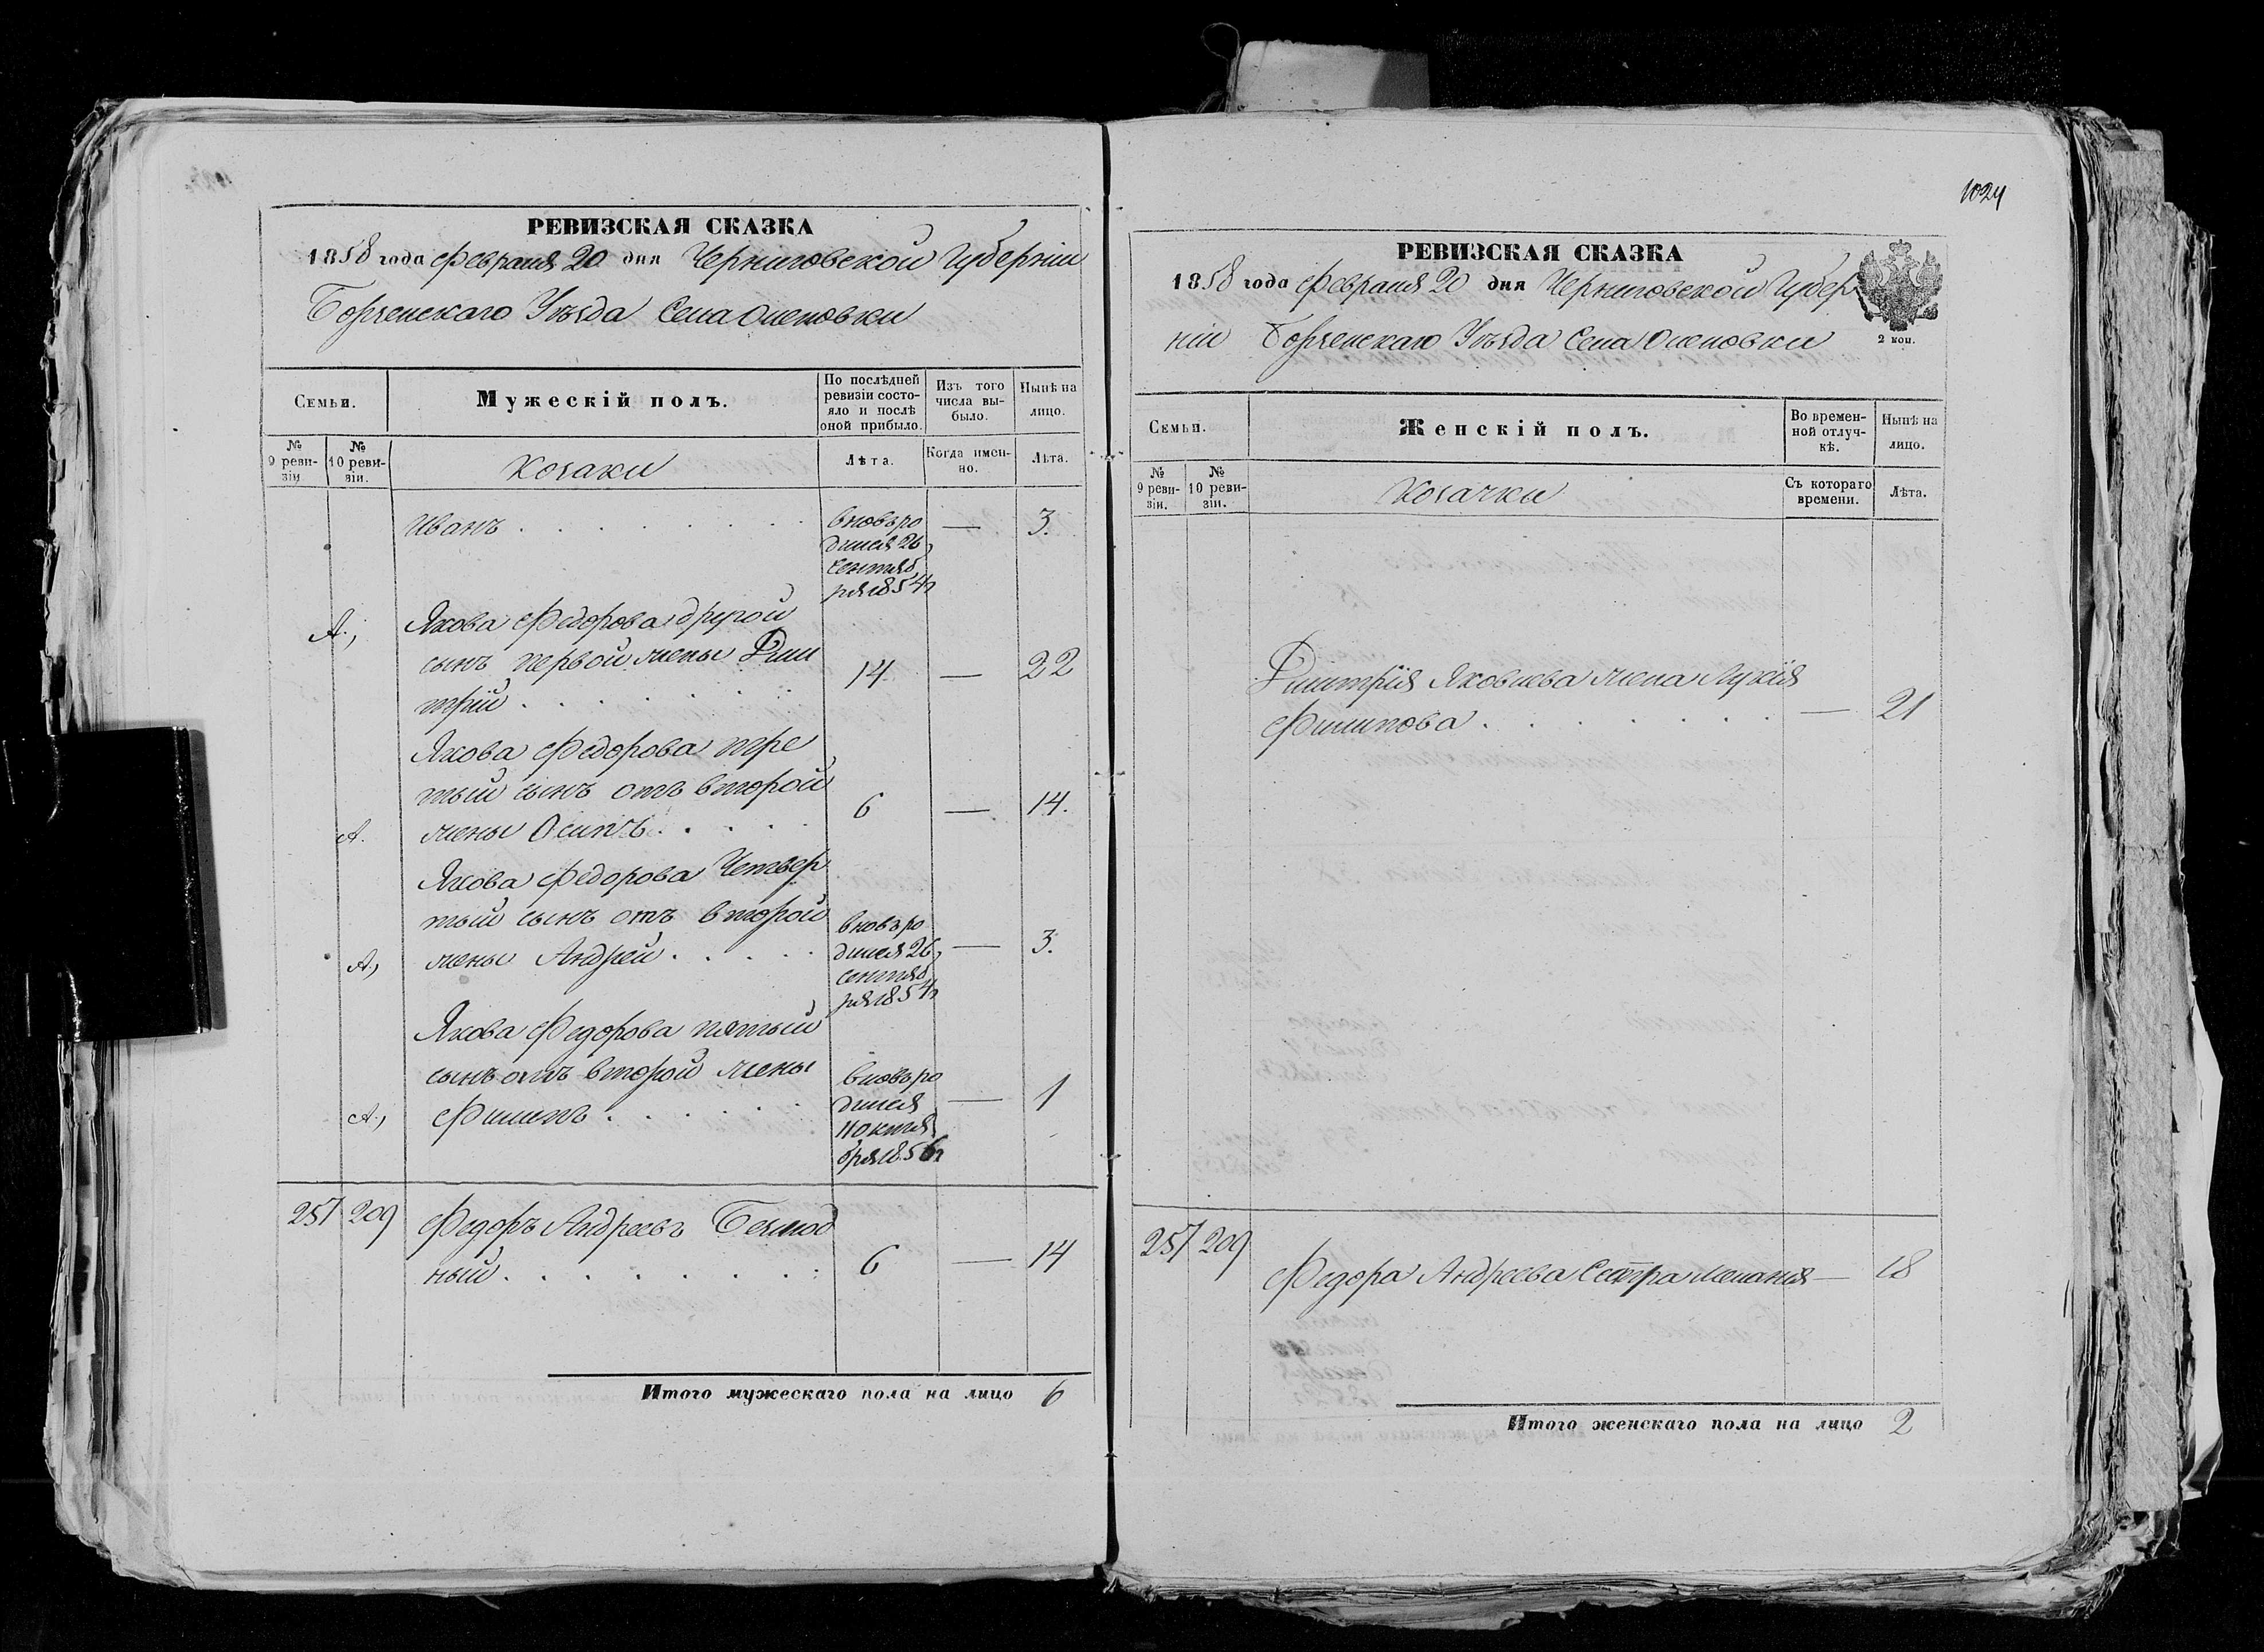 РЕВИЗСКАЯ СКАЗКА
1858 года Февраля 20 дня Черниговской Губерніи
Борзенскаго Уѣзда Села Оленовки
Семьи.
Мужескій полъ.
По послѣдней ревизіи состояло и послѣ оной прибыло.
Изъ того числа выбыло.
Нынѣ на лицо.
№ 9 ревизіи.
№ 10 ревизіи.
Козаки
Лѣта.
Когда именно.
Лѣта.
Иванъ . . . . . . . . вновь ро — 3.
дился 26
сентяб
ря 1854 г
А., Якова Федорова другой
сынъ первой жены Дми 14 — 22
трій . . . . . . .
Якова Федорова тре
тый сынъ отъ второй 6 — 14.
А. жены Осипъ . . . . .
Якова Федорова Четвер
тый сынъ отъ второй вновь ро
А., жены Андрей . . . . . дился 26 — 3.
сентяб
ря 1854 г
Якова Федорова пятый
сынъ отъ второй жены вновь ро
А., Филипъ . . . . . . дился — 1
11 октя
бря 1856 г
257 209 Федоръ Андреевъ Безлюд
ный . . . . . . . . . 6 — 14
Итого мужескаго пола на лицо 6
1024
РЕВИЗСКАЯ СКАЗКА
1858 года Февраля 20 дня Черниговской Губер
ніи Борзенскаго Уѣзда Села Оленовки
2 коп.
Семьи.
Женскій полъ.
Во временной отлучкѣ.
Нынѣ на лицо.
№ 9 ревизіи.
№ 10 ревизіи.
Козачки
Съ котораго времени.
Лѣта.
Дмитрія Яковлева жена Лукія
Филипова . . . . . . . — 21
257 209
Федора Андреева Сестра Меланія — 18
Итого женскаго пола на лицо 2